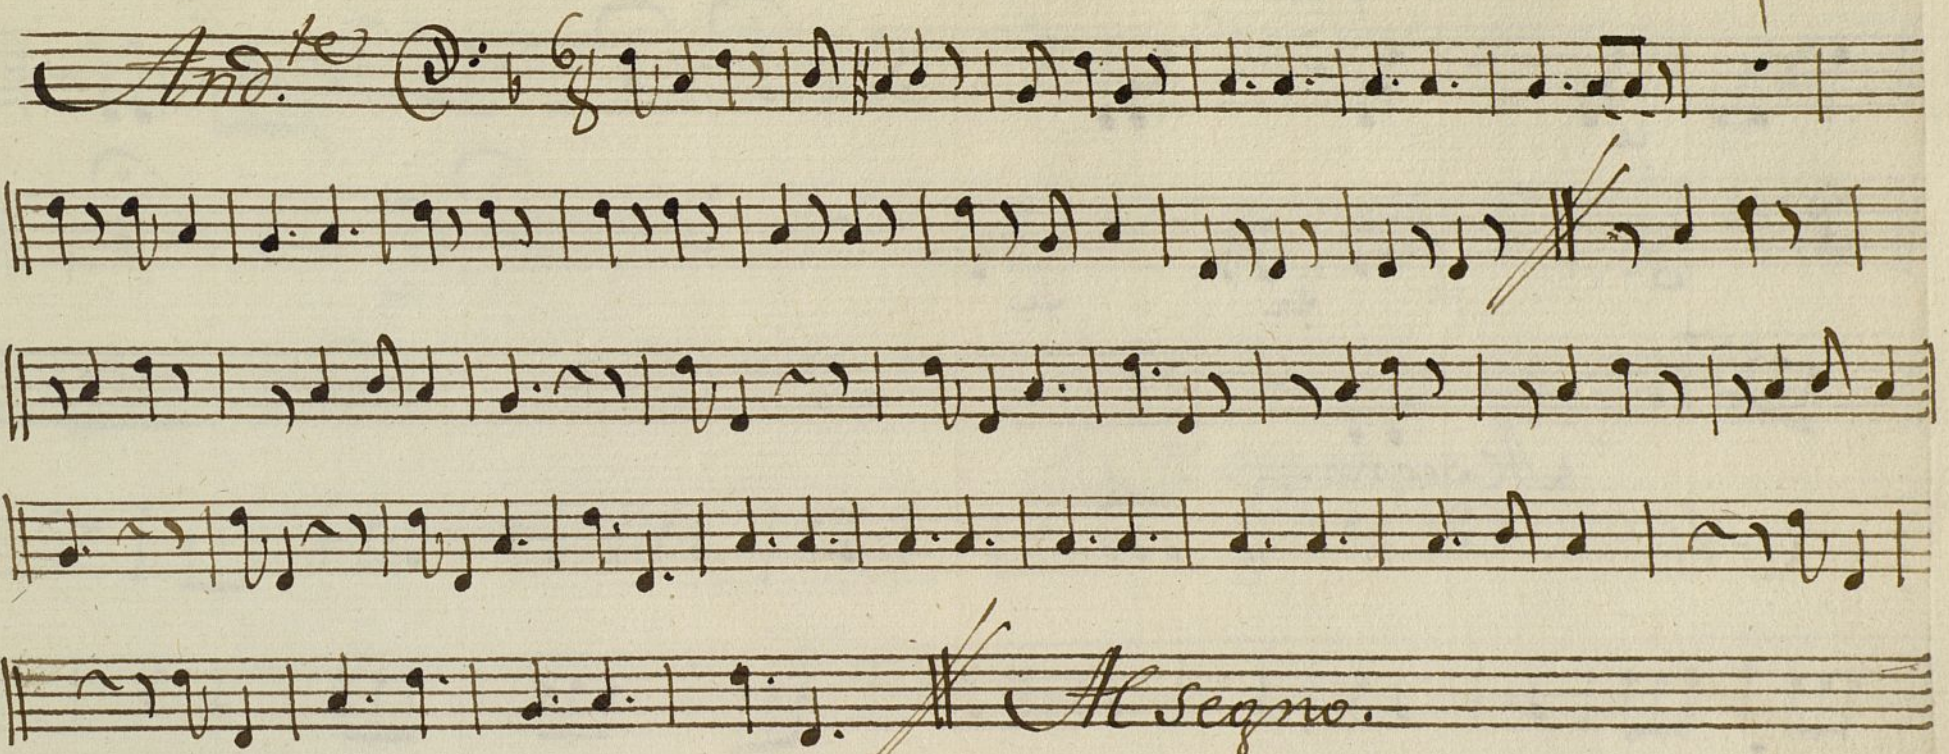 And.te 6 8
Al segno.